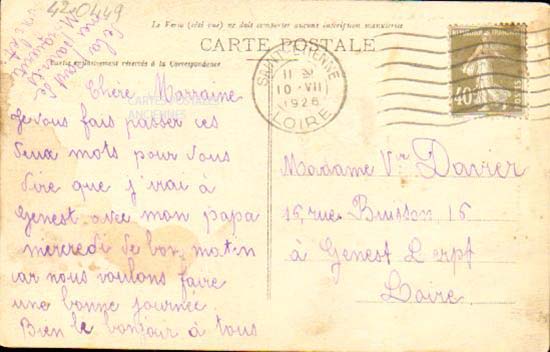 42-0449
Le Verso (côté vue) ne doit comporter aucune inscription manuscrite
CARTE POSTALE
Partie exclusivement réservée à la Correspondance
CARTE POSTALE
ANCIENNE
SAINT-ETIENNE
11
10 - VII
1926
LOIRE
40
Chère Marraine
Je vous fais passer ces
deux mots pour vous
dire que j'irai à
Genest avec mon papa
mercredi de bon matin
car nous voulons faire
une bonne journée
Bien le bonjour à tous
Madame Vve Davier
15, rue Buisson, 15
à Genest Lerpt
Loire